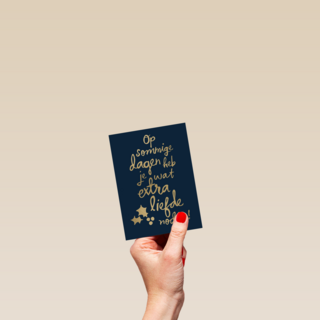 Op
sommige
dagen heb
je wat
extra
liefde